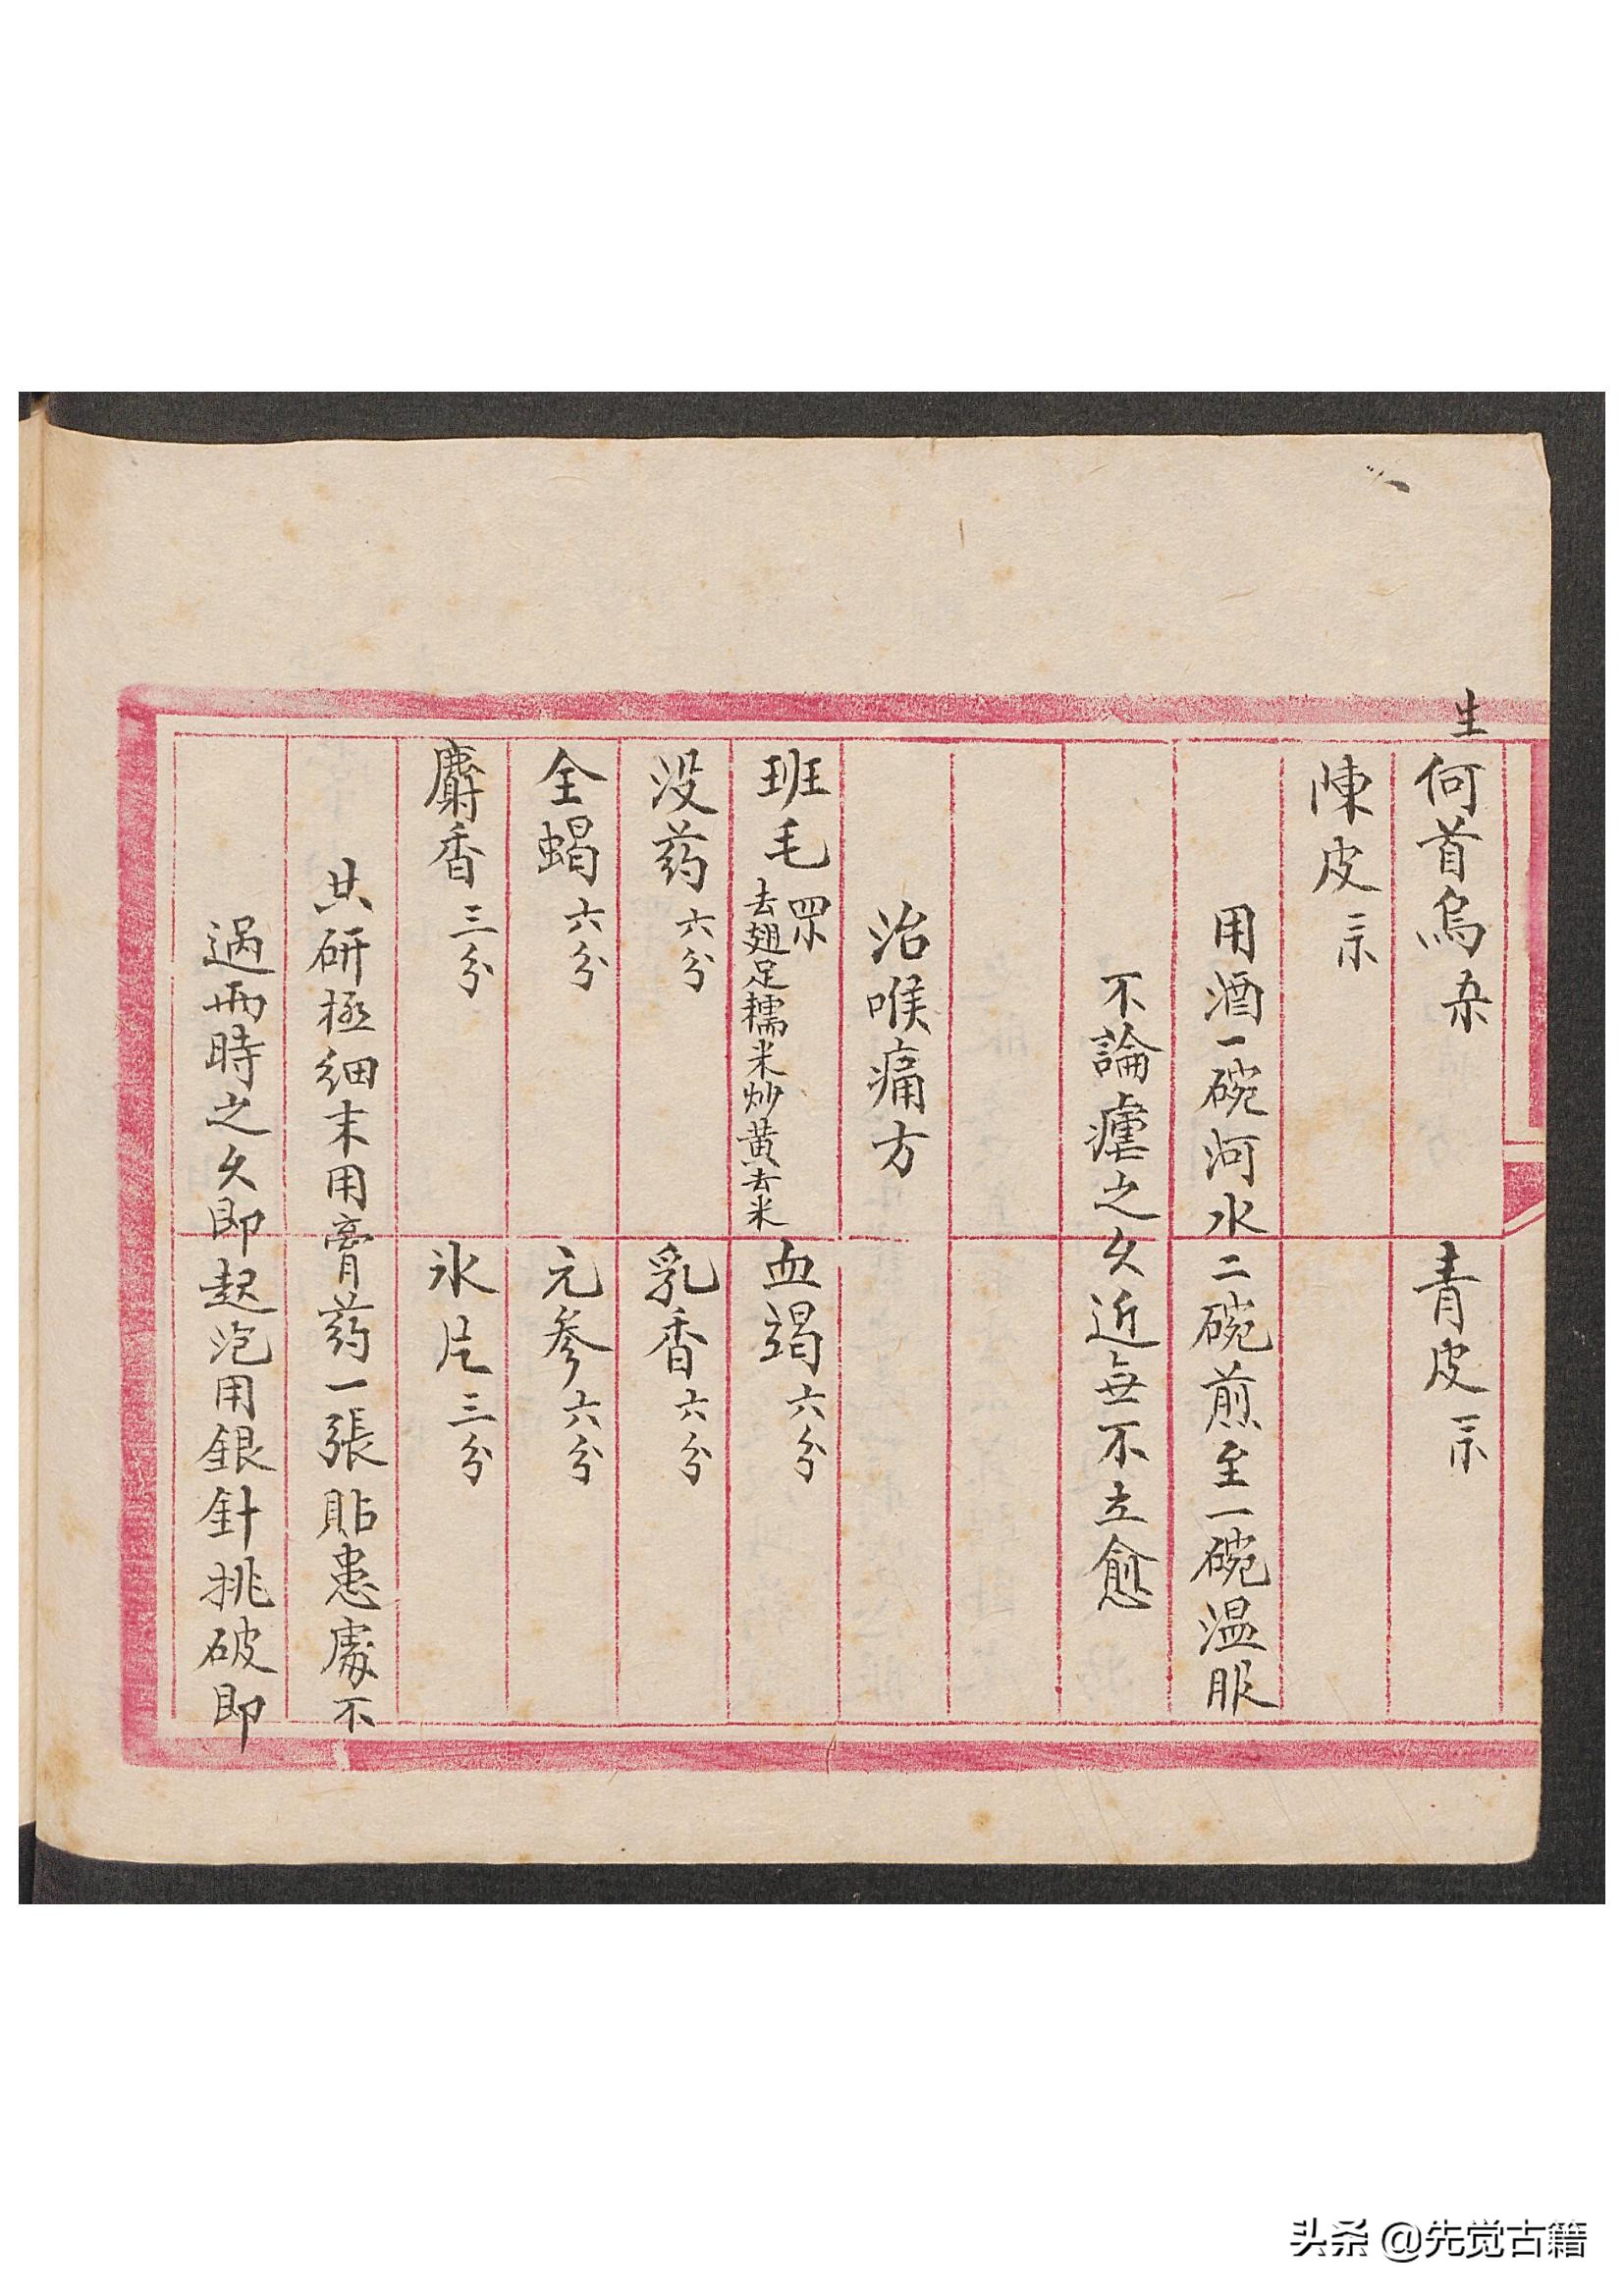 生何首烏 青皮
陳皮
用酒一碗河水二碗煎至一碗温服
不論瘧之久近無不立愈
治喉痛方
班毛 去翅足糯米炒黄去米 血竭六分
没药六分 乳香六分
全蝎六分 元參六分
麝香三分 氷片三分
共研極細末用膏药一張貼患處不
過兩時之久即起泡用銀針挑破即
头条 @先觉古籍